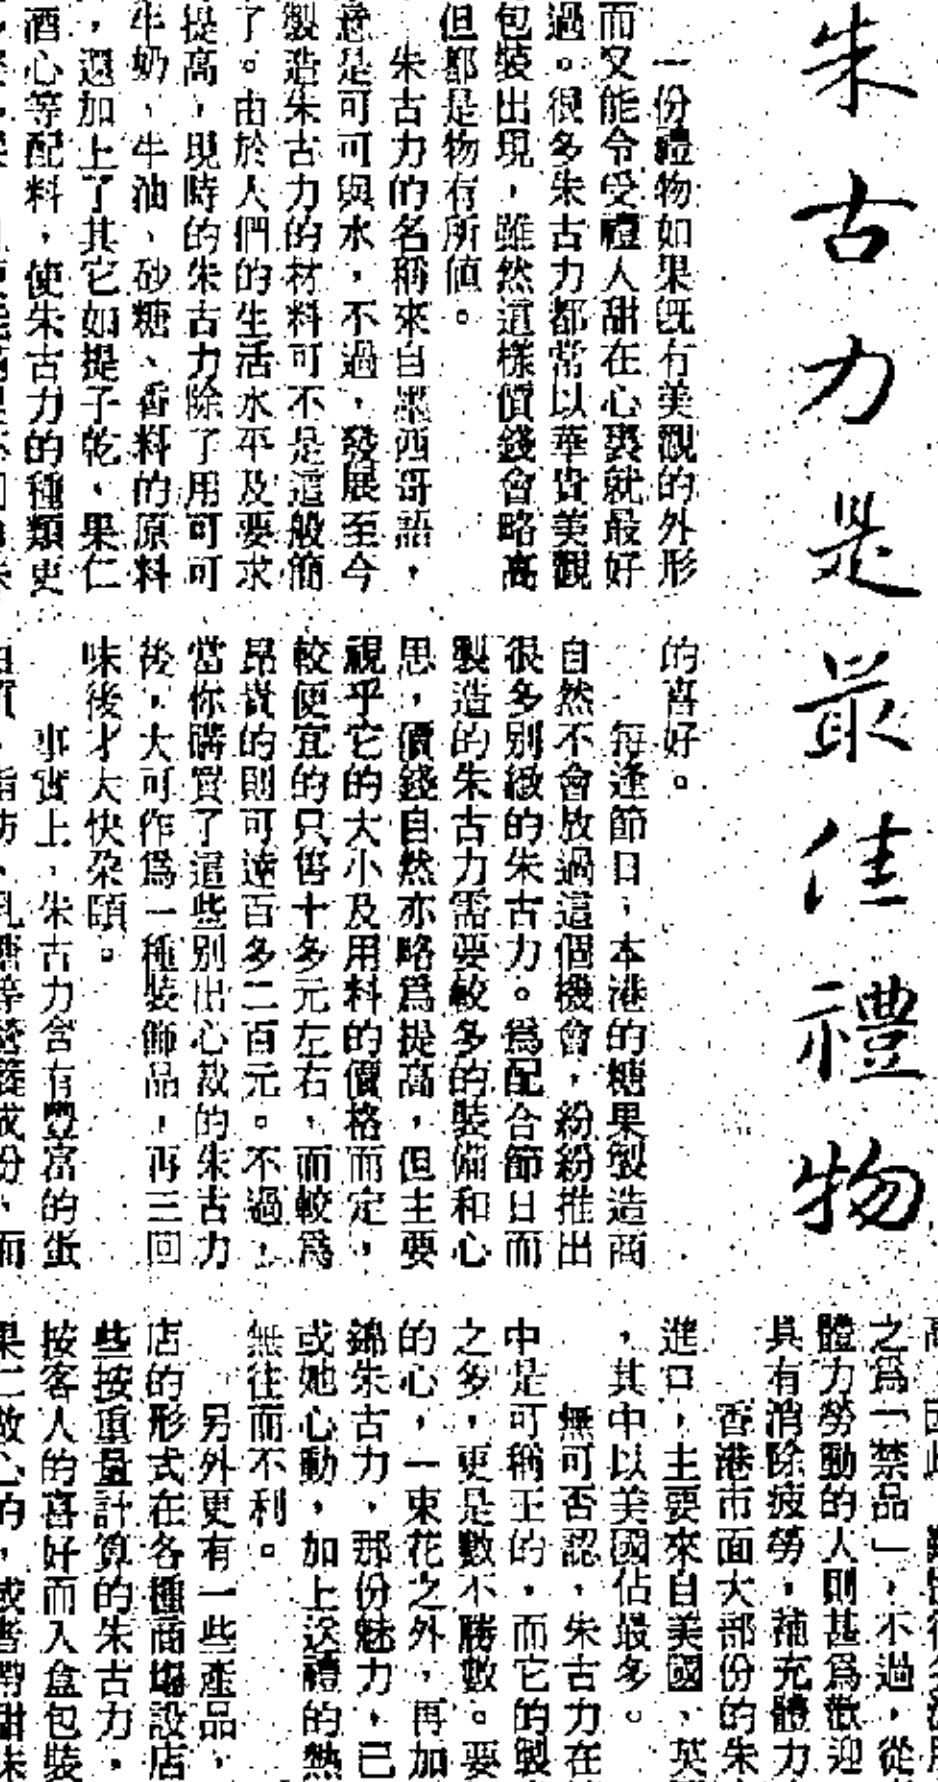 朱古力是最佳禮物
一份禮物如果既有美觀的外形
而又能令受禮人甜在心裏就最好
過。很多朱古力都常以華貴美觀
包裝出現，雖然這樣價錢會略高
但都是物有所值。
朱古力的名稱來自墨西哥語，
意是可可與水，不過，發展至今
製造朱古力的材料可不是這般簡
了。由於人們的生活水平及要求
提高，現時的朱古力除了用可可
牛奶、牛油、砂糖、香料的原料
，還加上了其它如提子乾、果仁
酒心等配料，使朱古力的種類更
的喜好。
每逢節日，本港的糖果製造商
自然不會放過這個機會，紛紛推出
很多别緻的朱古力。爲配合節日而
製造的朱古力需要較多的裝備和心
思，價錢自然亦略爲提高，但主要
視乎它的大小及用料的價格而定，
較便宜的只售十多元左右，而較爲
昂貴的則可達百多二百元。不過，
當你購買了這些别出心裁的朱古力
後，大可作爲一種裝飾品，再三回
味後才大快朶頤。
事實上，朱古力含有豐富的蛋
脂肪、乳糖等營養成份，而
之爲「禁品」，不過，從
體力勞動的人則甚爲歡迎
具有消除疲勞，補充體力
香港市面大部份的朱
進口，主要來自美國、英
，其中以美國佔最多。
無可否認，朱古力在
中是可稱王的，而它的製
之多，更是數不勝數。要
的心，一束花之外，再加
錦朱古力，那份魅力，已
或她心動，加上送禮的熱
無往而不利。
另外更有一些產品，
店的形式在各種商場設店
些按重量計算的朱古力，
按客人的喜好而入盒包裝
果仁做心的，或者帶甜味